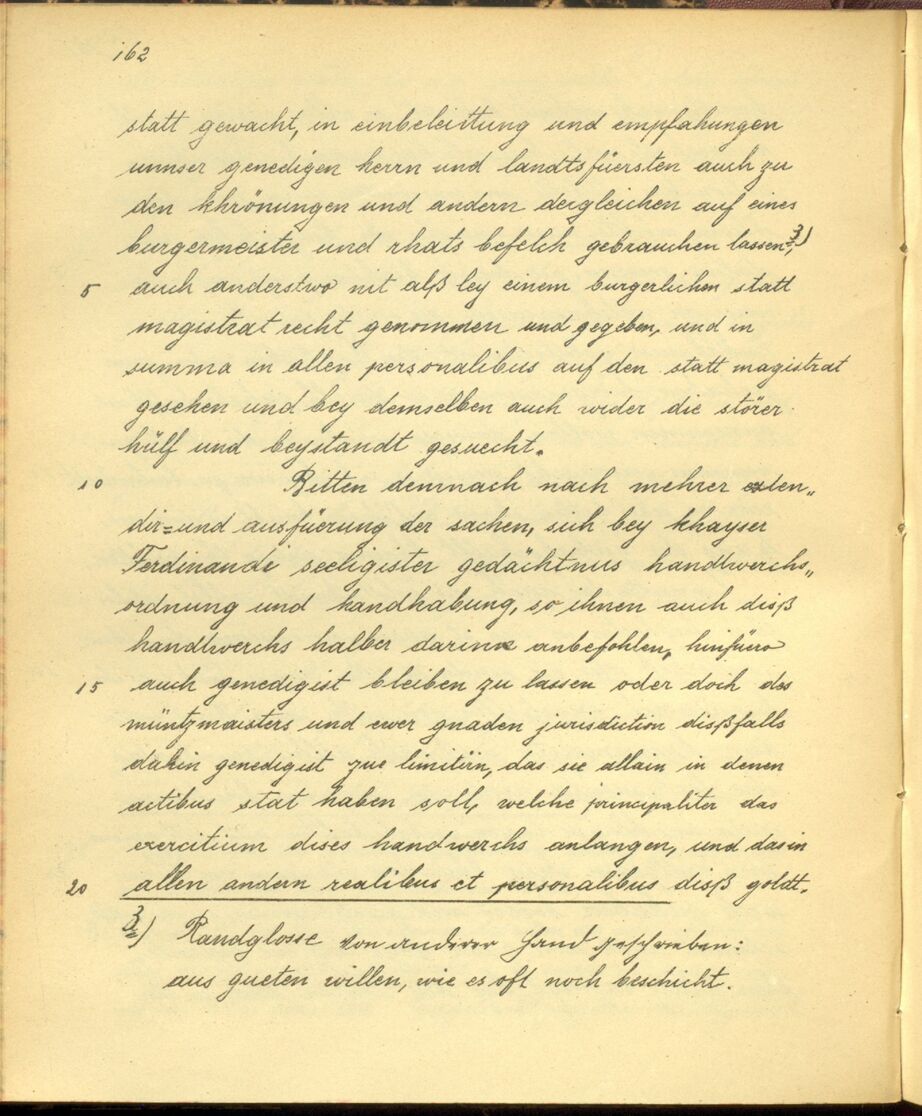 162
statt gewacht, in einbeleittung und empfahungen
unnser genedigen herrn und landtsfüersten auch zu
den khrönungen und andern dergleichen auf eines
burgermeister und rhats befelch gebrauchen lassen,3)
5 auch anderstwo nit alß bey einem burgerlichen statt
magistrat recht genommen und gegeben, und in
summa in allen personalibus auf den statt magistrat
gesehen und bey demselben auch wider die störer
hülf und beystandt gesuecht.
10 Bitten demnach nach mehrer exten„
dir= und ausfüerung der sachen, sich bey khayser
Ferdinandi seeligister gedächtnus handtwerchs„
ordnung und handhabung, so ihnen auch disß
handtwerchs halber darinn anbefohlen, hinfüero
15 auch genedigist bleiben zu lassen oder doch des
müntzmaisters und ewer gnaden jurisdiction disßfalls
dahin genedigist zue limitirn, das sie allain in denen
actibus stat haben soll, welche principaliter das
exercitium dises handwerchs anlangen, und das in
20 allen andern realibus et personalibus disß goldt„
3) Randglosse von anderer Hand geschrieben:
aus gueten willen, wie es oft noch beschicht.